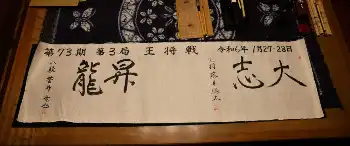 第73期 第3局 王将戦 令和6年 1月27・28日
大志
藤井聡太
昇龍
八段 菅井竜也